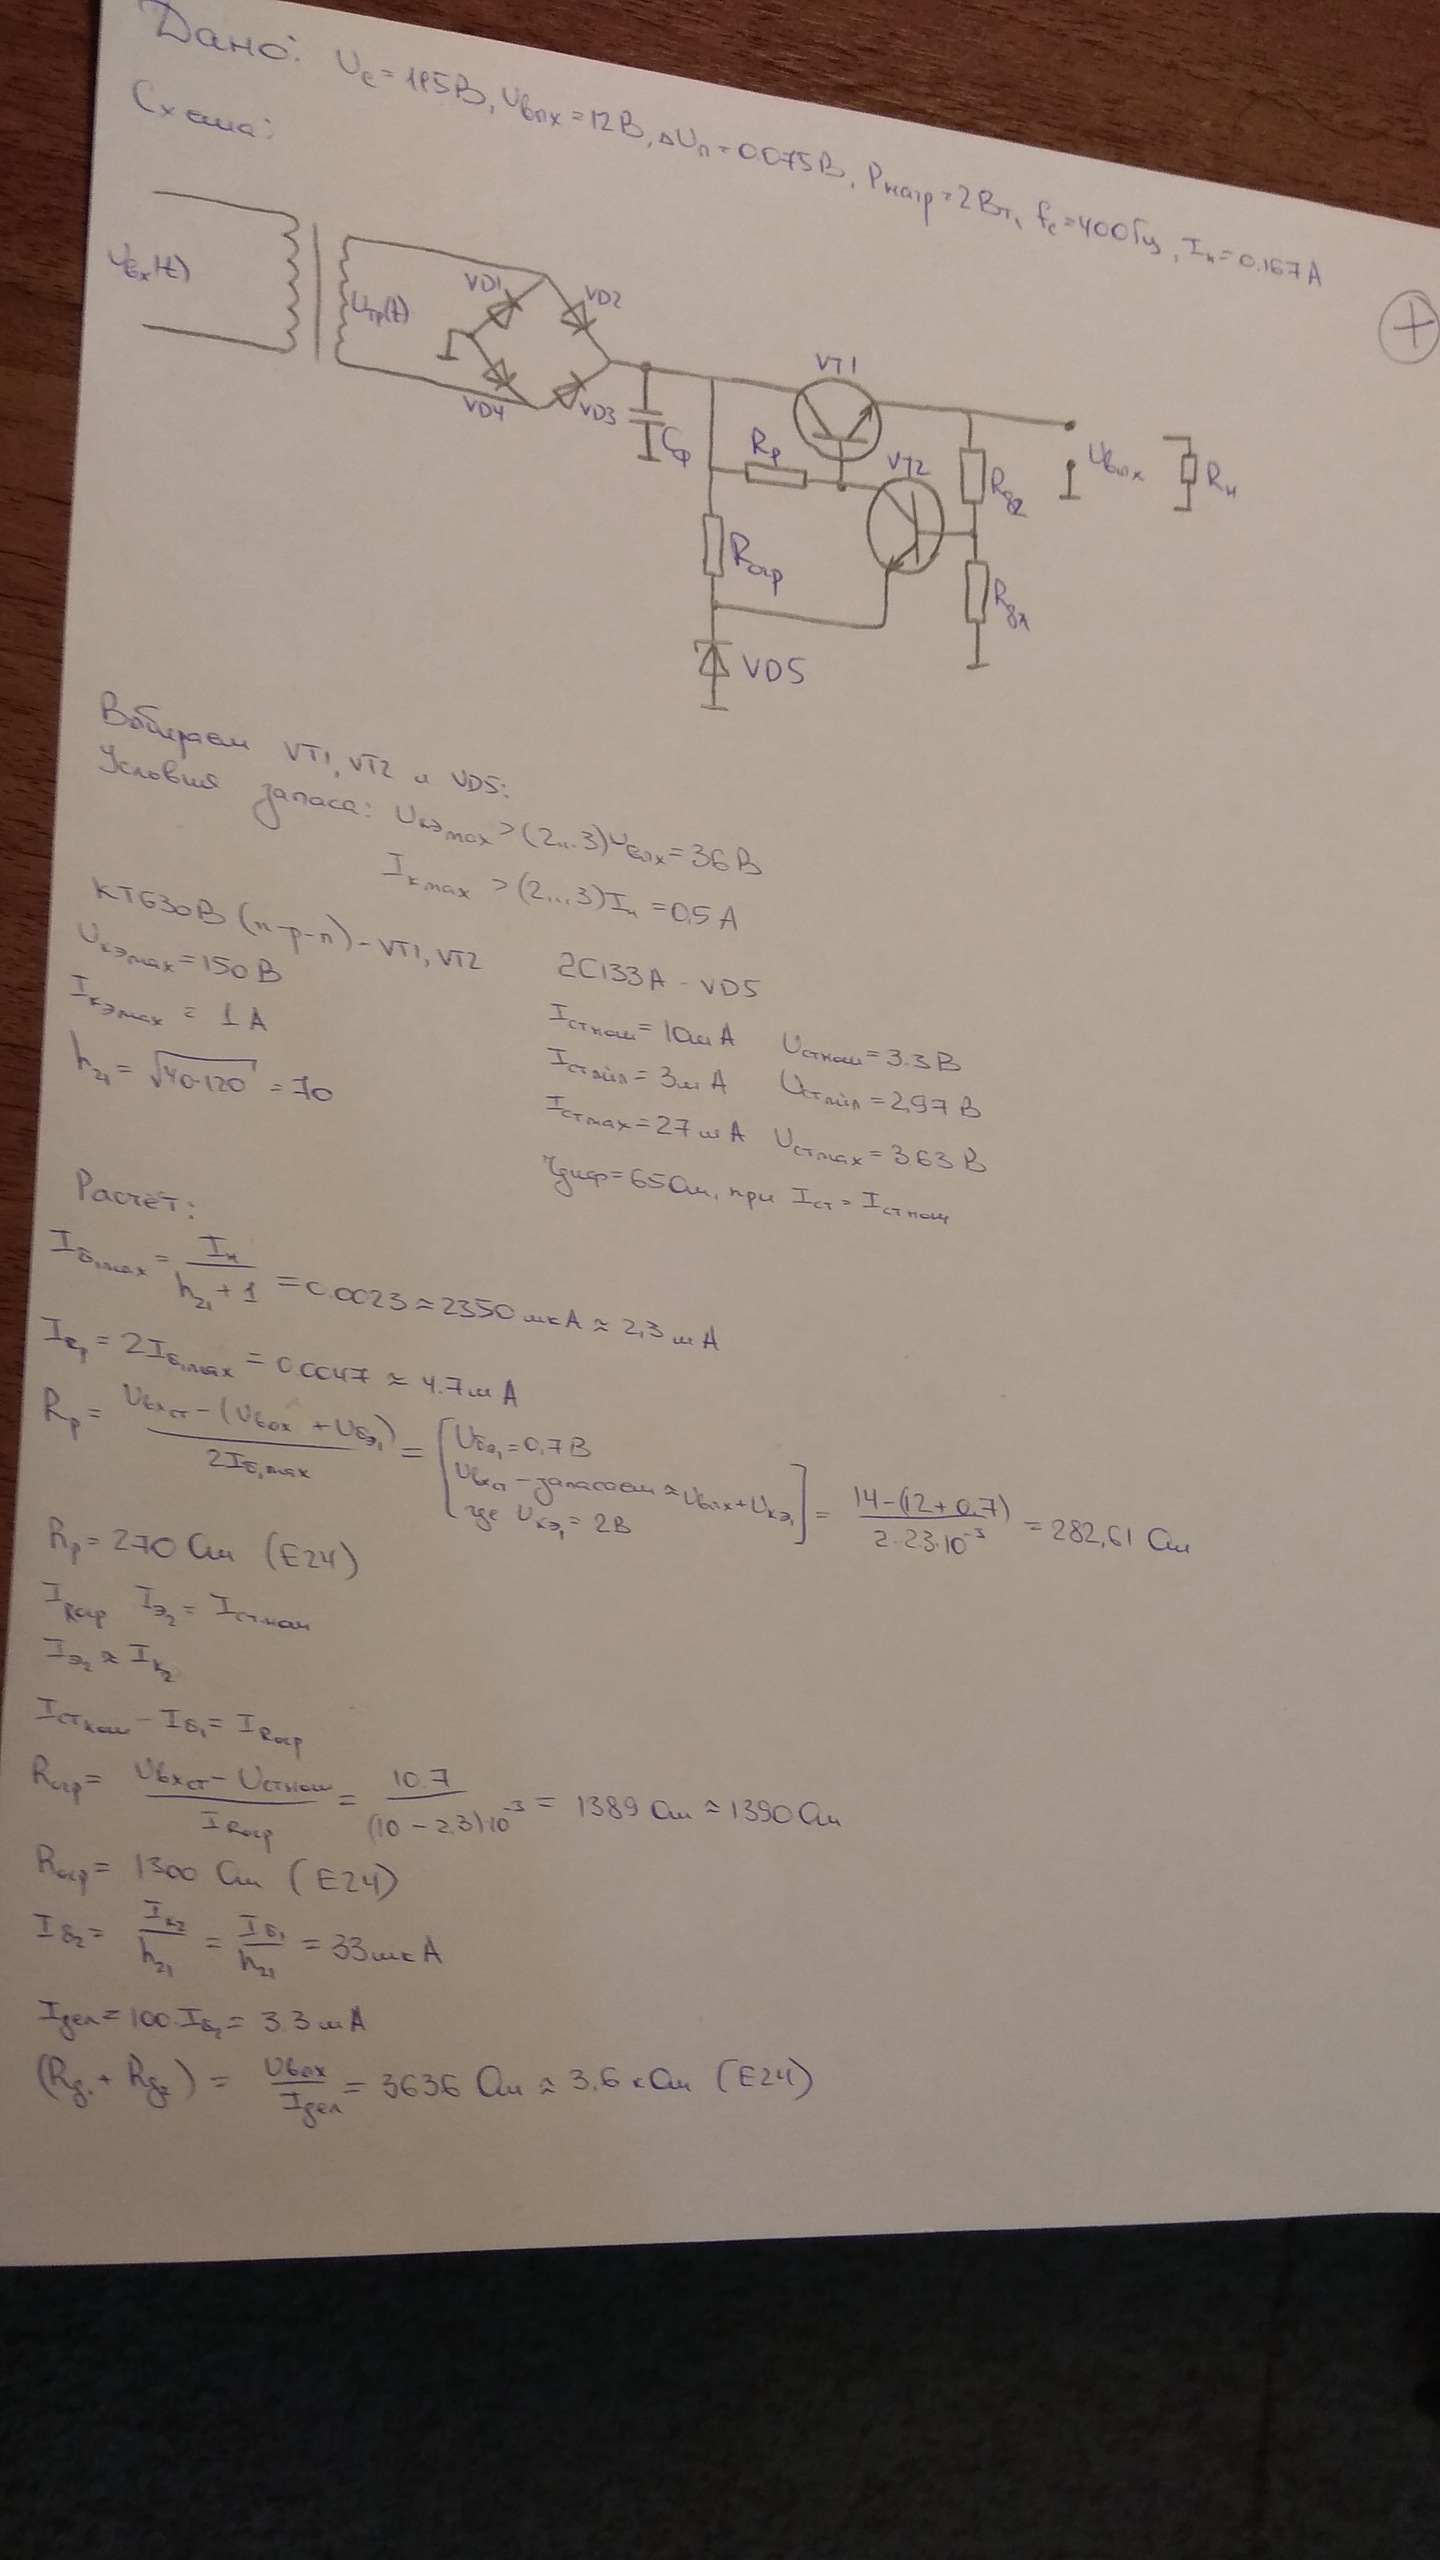 Дано: Uс = 115В, Uвых = 12В, ΔUп = 0.075В, Pнагр = 2Вт, fс = 400Гц, Iн = 0.167А
Схема:
+
Uвх(t)
Uтр(t)
VD1
VD2
VD3
VD4
Cф
VT1
Rр
VT2
Rд2
Uвых
Rн
Rогр
Rд1
VD5
Выбираем VT1, VT2 и VD5:
Условия запаса: Uкэmax > (2...3)Uвых = 36В
Iкmax > (2...3)Iн = 0.5А
КТ630В (n-p-n) - VT1, VT2
Uкэmax = 150В
Iкэmax = 1А
h21 = √40·120 = 70
2С133А - VD5
Iстном = 10мА Uстном = 3.3В
Iстmin = 3мА Uстmin = 2,97В
Iстmax = 27мА Uстmax = 3.63В
rдиф = 65Ом, при Iст = Iстном
Расчёт:
Iб1max = Iн / (h21 + 1) = 0.0023 ≈ 2350мкА ≈ 2,3мА
IRр = 2Iб1max = 0.0047 ≈ 4.7мА
Rр = (Uвхст - (Uвых + Uбэ1)) / 2Iб1max = [Uбэ1 = 0.7В Uвхст - запасаем ≈ Uвых + Uкэ1 где Uкэ1 = 2В] = (14 - (12 + 0,7)) / (2·2.3·10⁻³) = 282,61 Ом
Rр = 270 Ом (Е24)
IRогр Iэ2 = Iстном
Iэ2 ≈ Iк2
Iстном - Iб1 = IRогр
Rогр = (Uвхст - Uстном) / IRогр = 10.7 / ((10 - 2.3)·10⁻³) = 1389 Ом ≈ 1390 Ом
Rогр = 1300 Ом (Е24)
Iб2 = Iк2 / h21 = Iб1 / h21 = 33мкА
Iдел = 100·Iб2 = 3.3мА
(Rд1 + Rд2) = Uвых / Iдел = 3636 Ом ≈ 3.6 кОм (Е24)